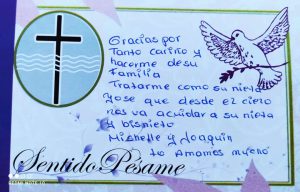 Gracias por
Tanto cariño y
hacerme de su
Familia
Tratarme como su nieta
yo se que desde el cielo
nos va acuidar a su nieta
y bisnieto
Michelle y Joaquin
te Amamos mucho
Sentido Pésame